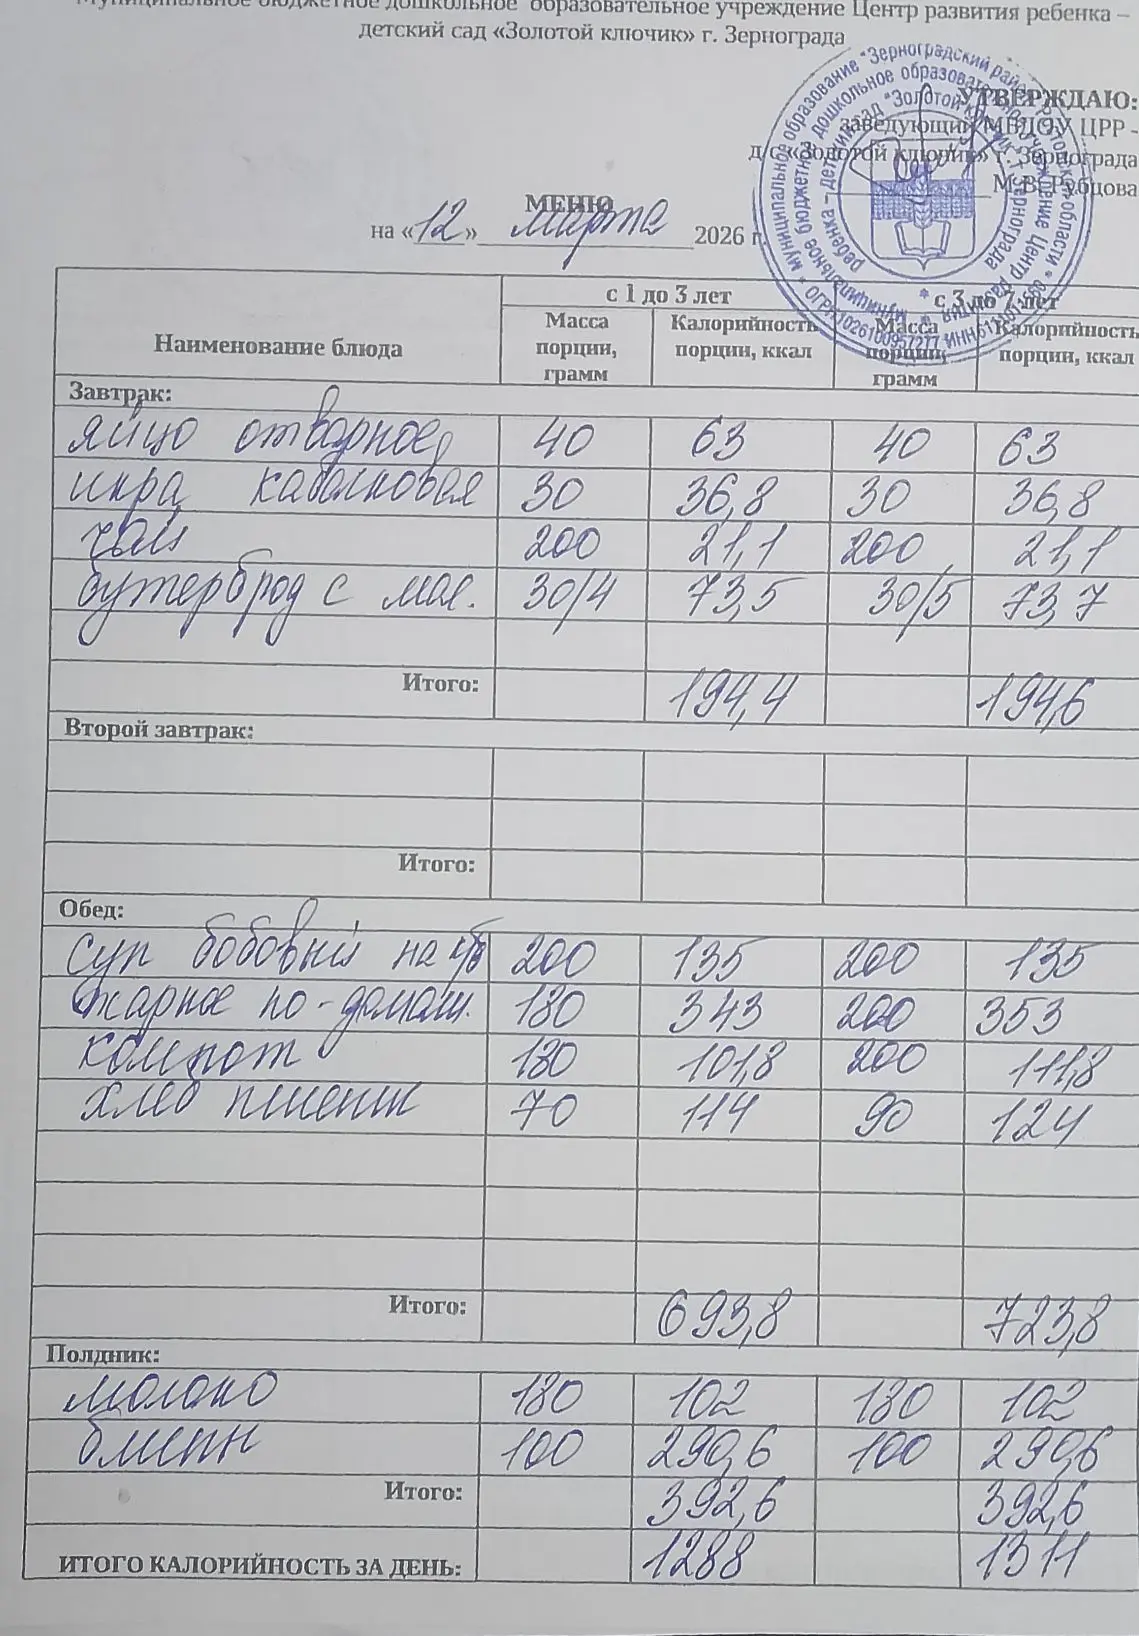 Муниципальное бюджетное дошкольное образовательное учреждение Центр развития ребенка –
детский сад «Золотой ключик» г. Зернограда
УТВЕРЖДАЮ:
заведующий МБДОУ ЦРР -
д/с «Золотой ключик» г. Зернограда
М.В. Рубцова
МЕНЮ
на «12» марта 2026 г.
Наименование блюда с 1 до 3 лет с 3 до 7 лет
Масса порции, грамм Калорийность порции, ккал Масса порции, грамм Калорийность порции, ккал
Завтрак:
яйцо отварное 40 63 40 63
икра кабачковая 30 36,8 30 36,8
чай 200 21,1 200 21,1
бутерброд с мас. 30/4 73,5 30/5 73,7
Итого: 194,4 194,6
Второй завтрак:
Итого:
Обед:
суп бобовый на 200 135 200 135
жаркое по-домаш. 180 343 200 353
компот 180 101,8 200 111,8
хлеб пшенич 70 114 90 124
Итого: 693,8 723,8
Полдник:
молоко 180 102 180 102
блины 100 290,6 100 290,6
Итого: 392,6 392,6
ИТОГО КАЛОРИЙНОСТЬ ЗА ДЕНЬ: 1288 1311